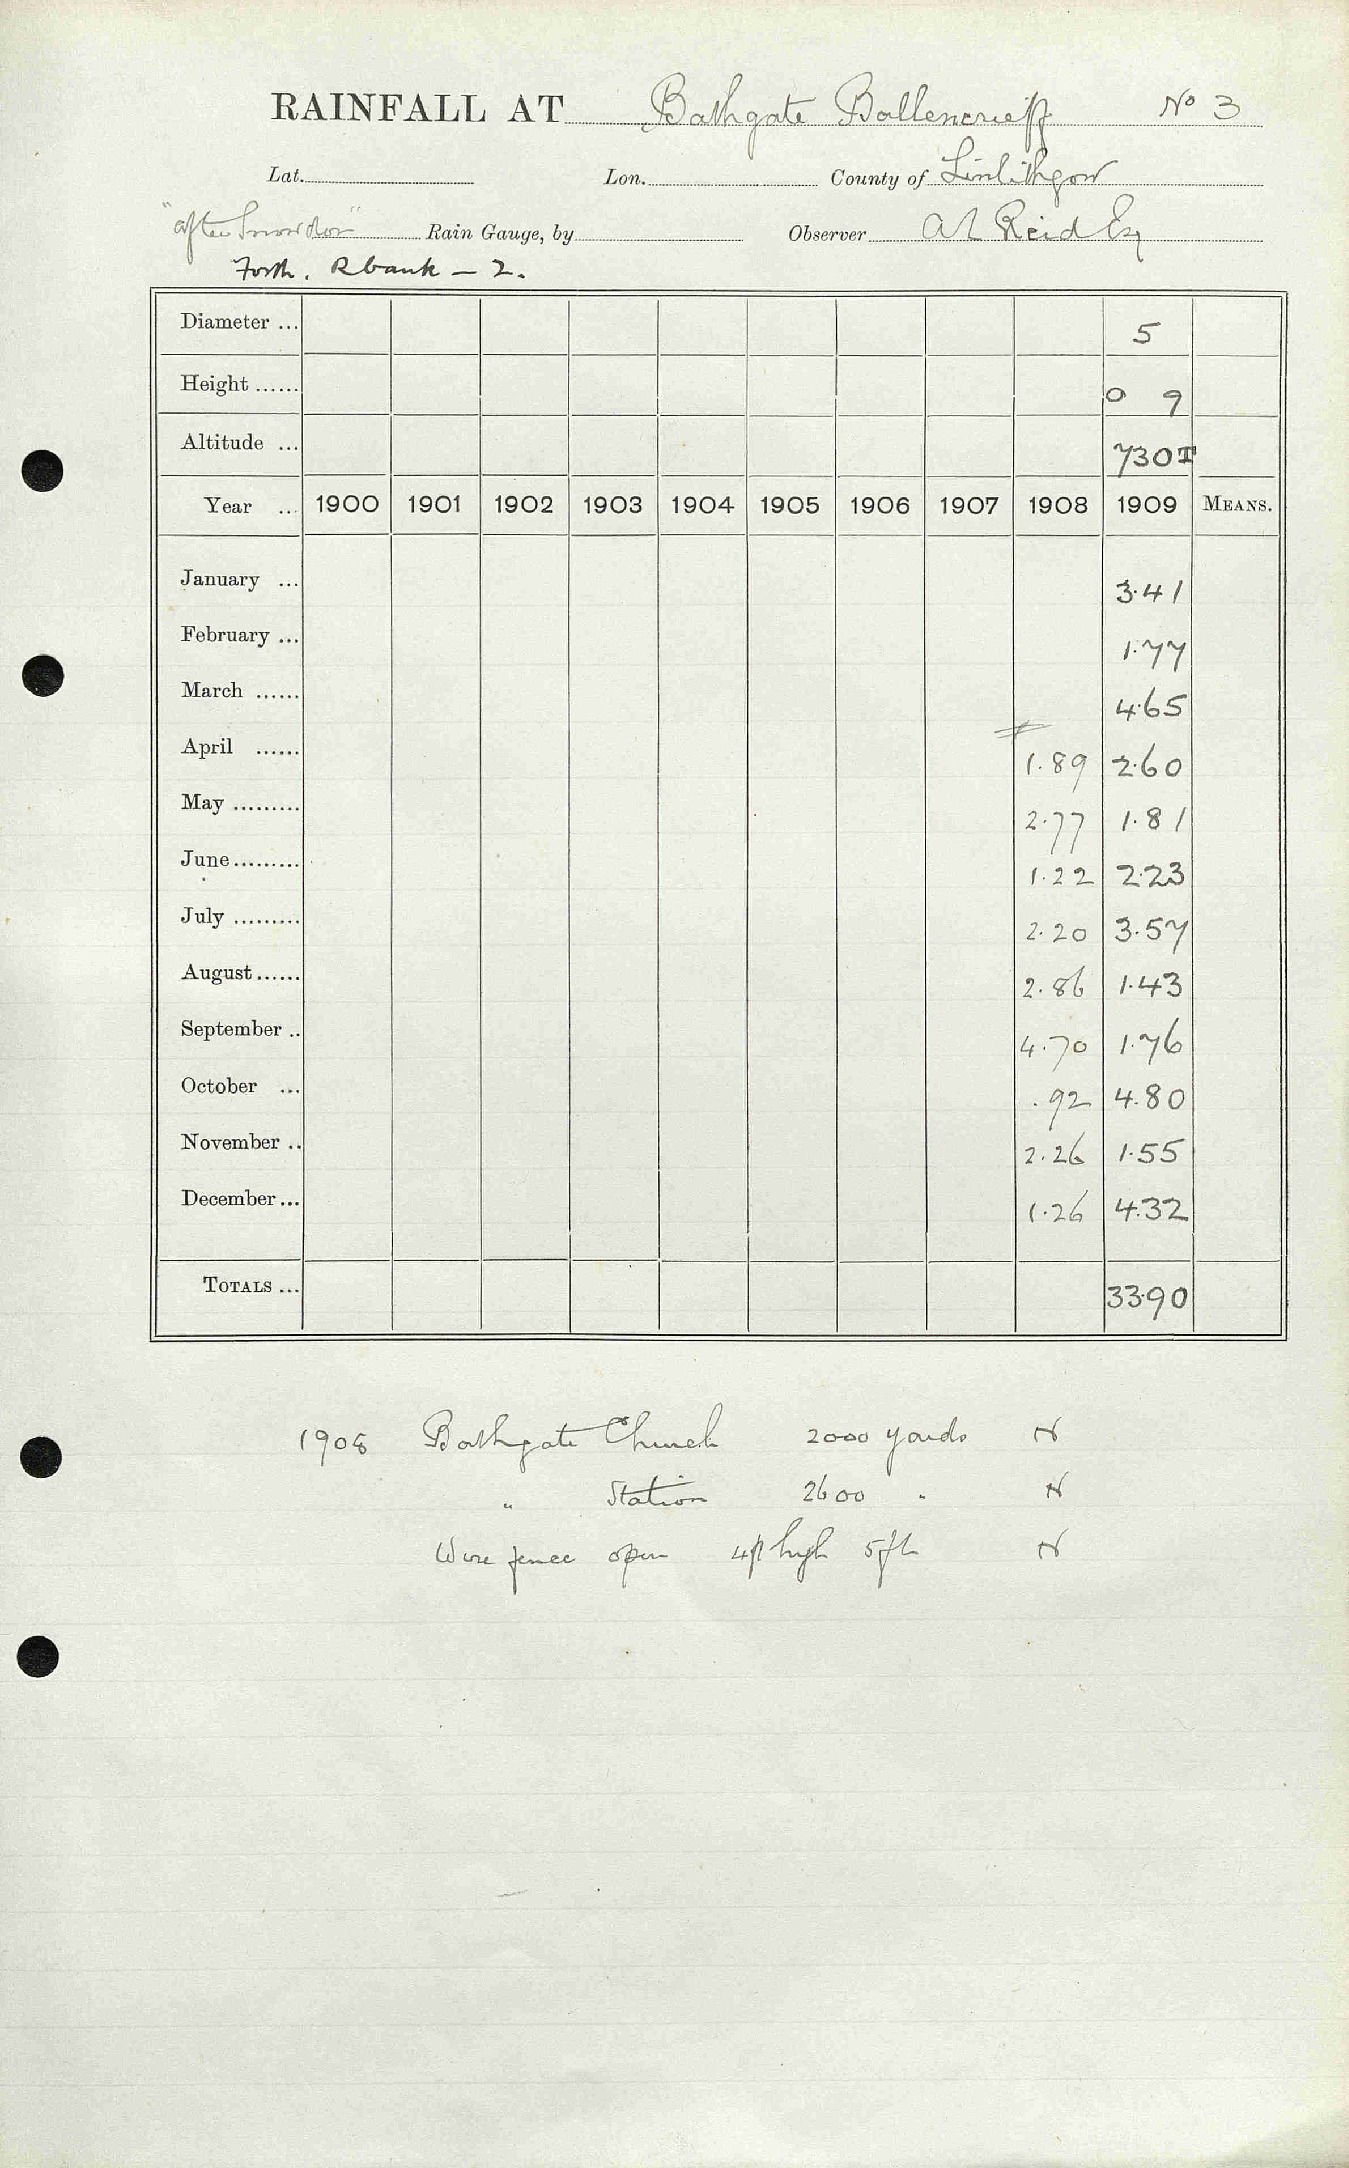 RAINFALL AT Bathgate Ballencrieff No 3
Lat. Lon. County of Linlithgow
"after Snowdon" Rain Gauge, by Observer A L Reid Esq
Forth. R bank – 2.
Diameter ... 5
Height ...... 0 9
Altitude ... 730 T
Year ... 1900 1901 1902 1903 1904 1905 1906 1907 1908 1909 MEANS.
January ... 3.41
February ... 1.77
March ...... 4.65
April ...... 1.89 2.60
May ......... 2.77 1.81
June ......... 1.22 2.23
July ......... 2.20 3.57
August ...... 2.86 1.43
September .. 4.70 1.76
October ... .92 4.80
November .. 2.26 1.55
December ... 1.26 4.32
TOTALS ... 33.90
1908 Bathgate Church 2000 yards N
" Station 2600 " N
Wire fence open 4ft high 5ft N